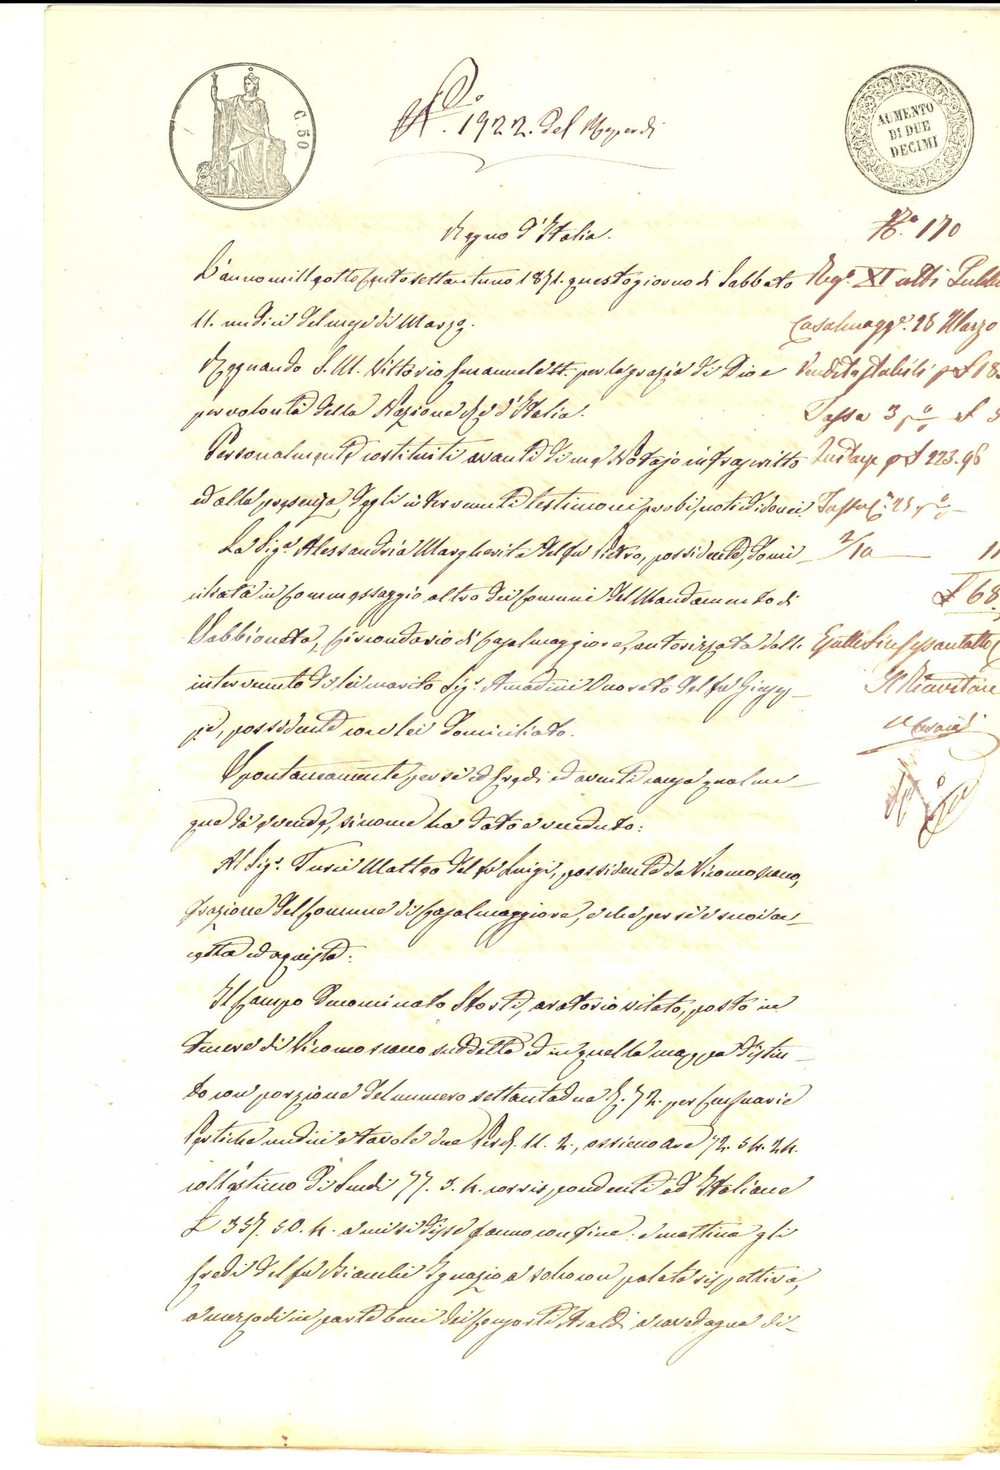 C. 50.
AUMENTO
DI DUE
DECIMI
N.º 1922. del
Regno d'Italia.
L'anno mille otto cento settant'uno 1871. questo giorno di Sabbato
11. undici del mese di Marzo.
Regnando S. M. Vittorio Emanuele II. per la grazia di Dio e
per volontà della Nazione Re d'Italia.
Personalmente costituiti avanti di me Notajo infrascritto
ed alla presenza degli intervenuti testimoni probi, noti ed idonei
La Sig.ª Alessandria Margherita del fu Pietro, possidente, domi-
ciliata in Commessaggio altro dei Comuni del Mandamento di
Sabbioneta, Circondario di Casalmaggiore, autorizzata dall'
intervento di lei marito Sig.r Amadini Onorato del fu Giusep-
pe, possidente con lei domiciliato.
Spontaneamente per sè ed Eredi ed aventi causa qualun-
que dà e vende, siccome ha dato e venduto:
Al Sig.r Matteo del fu Luigi, possidente da Vicomoscano,
frazione del Comune di Casalmaggiore, che per sè e suoi ac-
cetta ed acquista:
Il Campo denominato aratorio vitato, posto in
di Vicomoscano suddetto ed in quella mappa distin-
to con porzione del numero settantadue N. 72. per Censuarie
Pertiche undici e tavole due Pert. 11. 2., ossieno are 72. 54. 24.
coll'estimo di Scudi 77. 3. 4. corrispondenti ad Italiane
L 357. 50. 4. fanno confine a mattina gli
Eredi del fu Bianchi Ignazio a
a mezzodì in parte beni dei Consorti Araldi di-
N.º 170
Reg.º XI atti Pubbl
Casalmagg.e 28 Marzo
Vendita stabili
Tassa 3
223.96
2/10
£ 68
Il Ricevitore